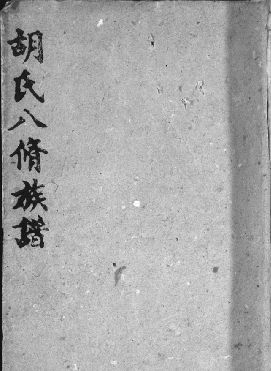 胡氏八脩族譜